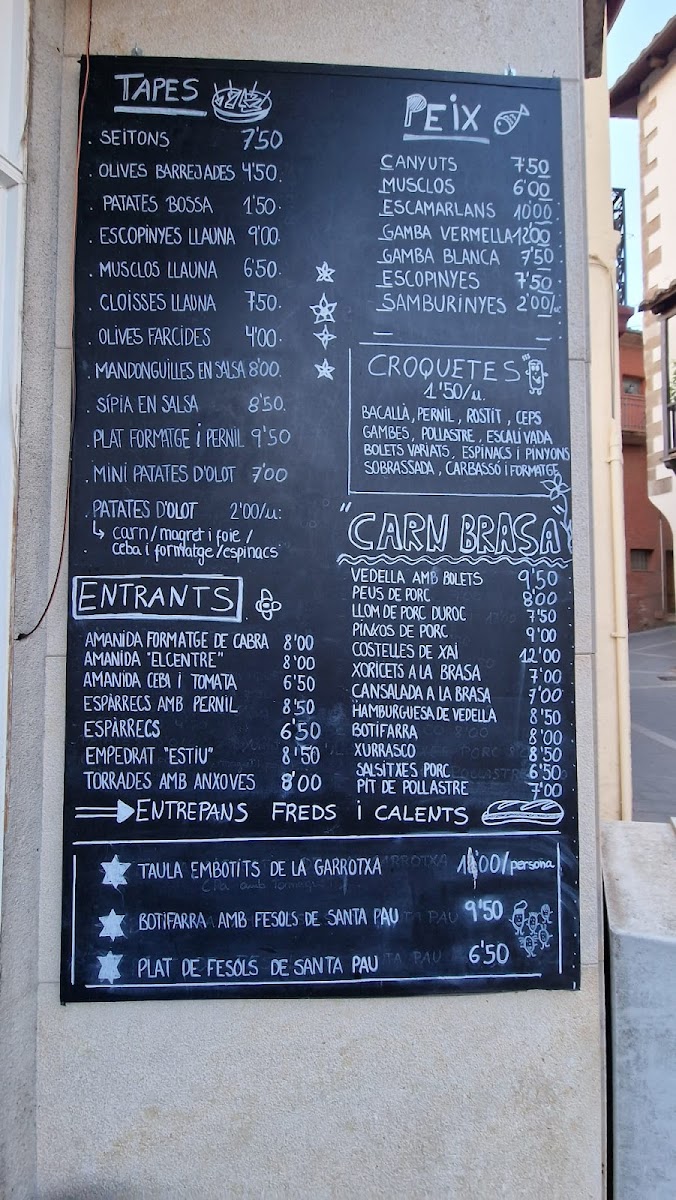 TAPES
. SEITONS 7'50
. OLIVES BARREJADES 4'50.
. PATATES BOSSA 1'50.
. ESCOPINYES LLAUNA 9'00.
. MUSCLOS LLAUNA 6'50.
. CLOISSES LLAUNA 7'50.
. OLIVES FARCIDES 4'00.
. MANDONGUILLES EN SALSA 8'00.
. SÍPIA EN SALSA 8'50.
. PLAT FORMATGE i PERNIL 9'50
. MINI PATATES D'OLOT 7'00
. PATATES D'OLOT 2'00/u.
carn/magret i foie/
ceba i formatge/espinacs
ENTRANTS
AMANIDA FORMATGE DE CABRA 8'00
AMANIDA "ELCENTRE" 8'00
AMANIDA CEBA I TOMATA 6'50
ESPÀRRECS AMB PERNIL 8'50
ESPÀRRECS 6'50
EMPEDRAT "ESTIU" 8'50
TORRADES AMB ANXOVES 8'00
PEIX
CANYUTS 7'50
MUSCLOS 6'00
ESCAMARLANS 10'00
GAMBA VERMELLA 12'00
GAMBA BLANCA 7'50
ESCOPINYES 7'50
SAMBURINYES 2'00/u.
CROQUETES
1'50/u.
BACALLÀ, PERNIL, ROSTIT, CEPS
GAMBES, POLLASTRE, ESCALIVADA
BOLETS VARIATS, ESPINACS I PINYONS
SOBRASSADA, CARBASSÓ i FORMATGE
"CARN BRASA"
VEDELLA AMB BOLETS 9'50
PEUS DE PORC 8'00
LLOM DE PORC DUROC 7'50
PINXOS DE PORC 9'00
COSTELLES DE XAI 12'00
XORICETS A LA BRASA 7'00
CANSALADA A LA BRASA 7'00
HAMBURGUESA DE VEDELLA 8'50
BOTIFARRA 8'00
XURRASCO 8'50
SALSITXES PORC 6'50
PIT DE POLLASTRE 7'00
ENTREPANS FREDS i CALENTS
TAULA EMBOTITS DE LA GARROTXA /persona
BOTIFARRA AMB FESOLS DE SANTA PAU 9'50
PLAT DE FESOLS DE SANTA PAU 6'50